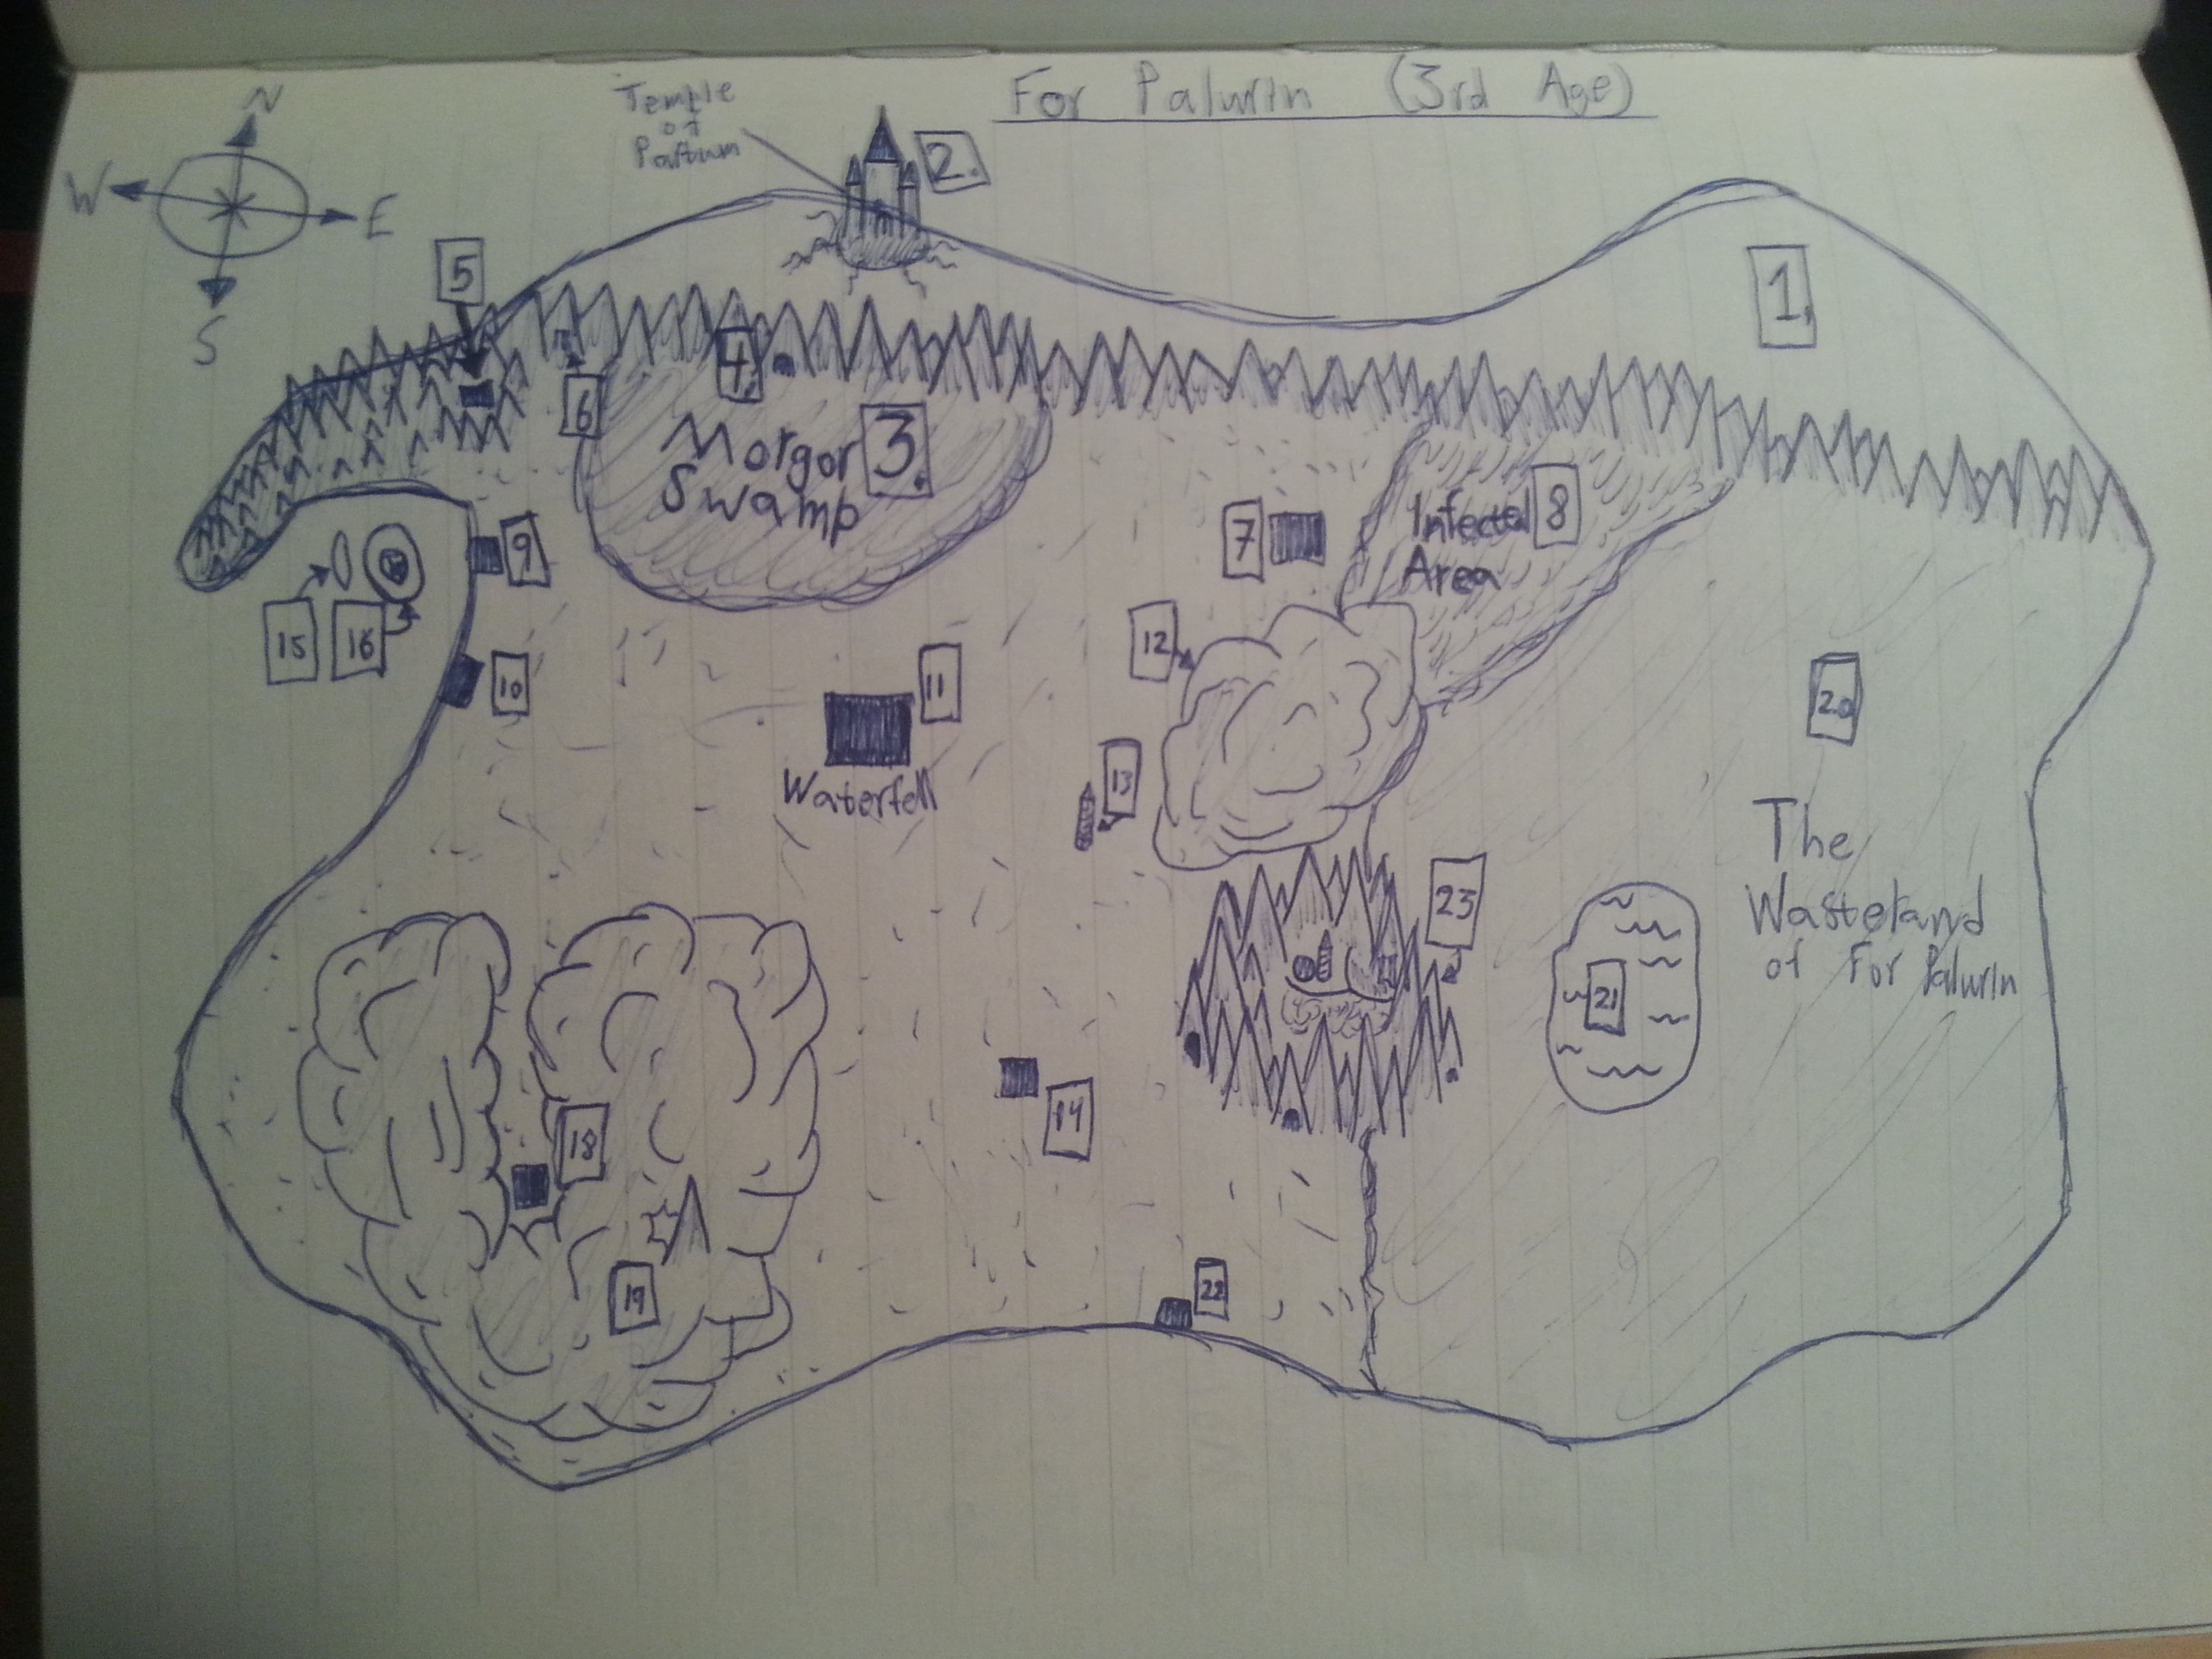 For Palurin (3rd Age)
Temple
of
2.
N
W
E
S
1.
5
4.
6
Morgor
Swamp
3.
7
Infected
Area
8
9
15
16
10
12
11
Waterfell
13
20
The
Wasteland
of For Palurin
23
21
14
18
19
22